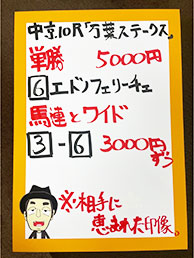 中京10R「万葉ステークス」
単勝 5000円
6 エドノフェリーチェ
馬連とワイド
3-6 3000円ずつ
※相手に恵まれた印像。